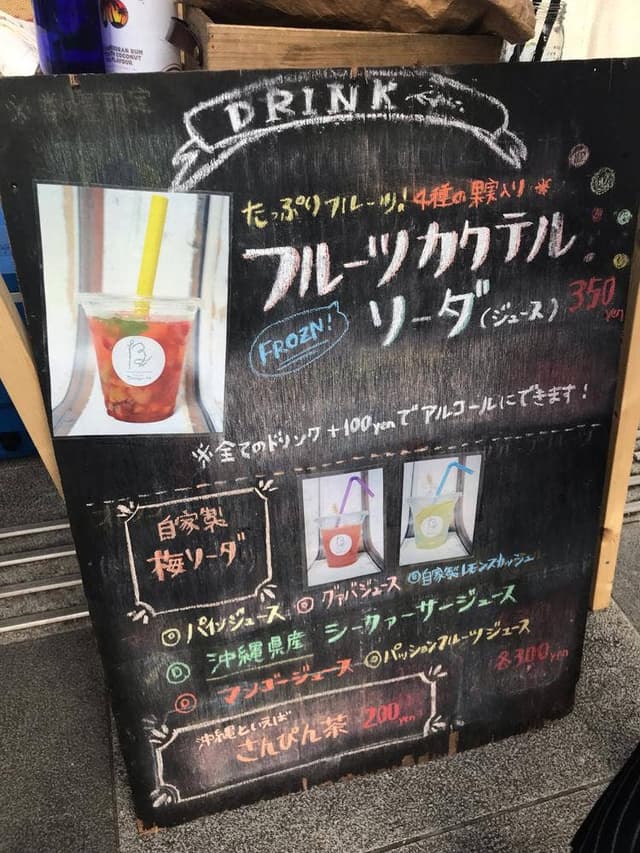 CARIBBEAN RUM
WITH COCONUT
FLAVOUR
DRINK
たっぷりフルーツ! 4種の果実入り*
フルーツカクテル
ソーダ(ジュース) 350 yen
FROZN!
※全てのドリンク+100yenでアルコールにできます!
自家製
梅ソーダ
◎パインジュース ◎グァバジュース ◎自家製レモンスカッシュ
◎沖縄県産 シークァーサージュース
◎マンゴージュース ◎パッションフルーツジュース
300 yen
沖縄といえば
さんぴん茶 200 yen